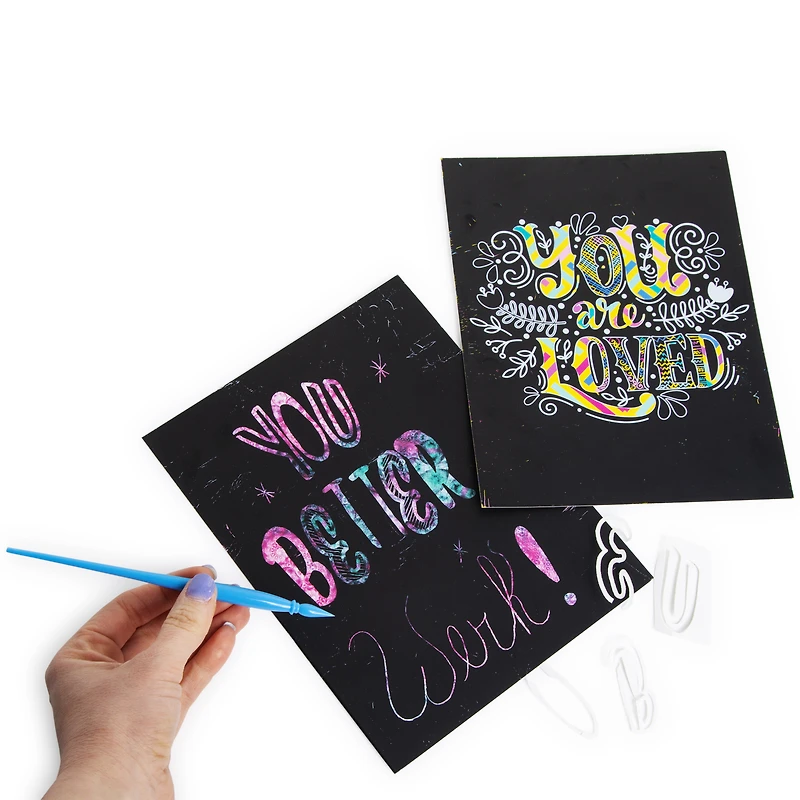 YOU
BETTER
Werk!
YOU
are
LOVED